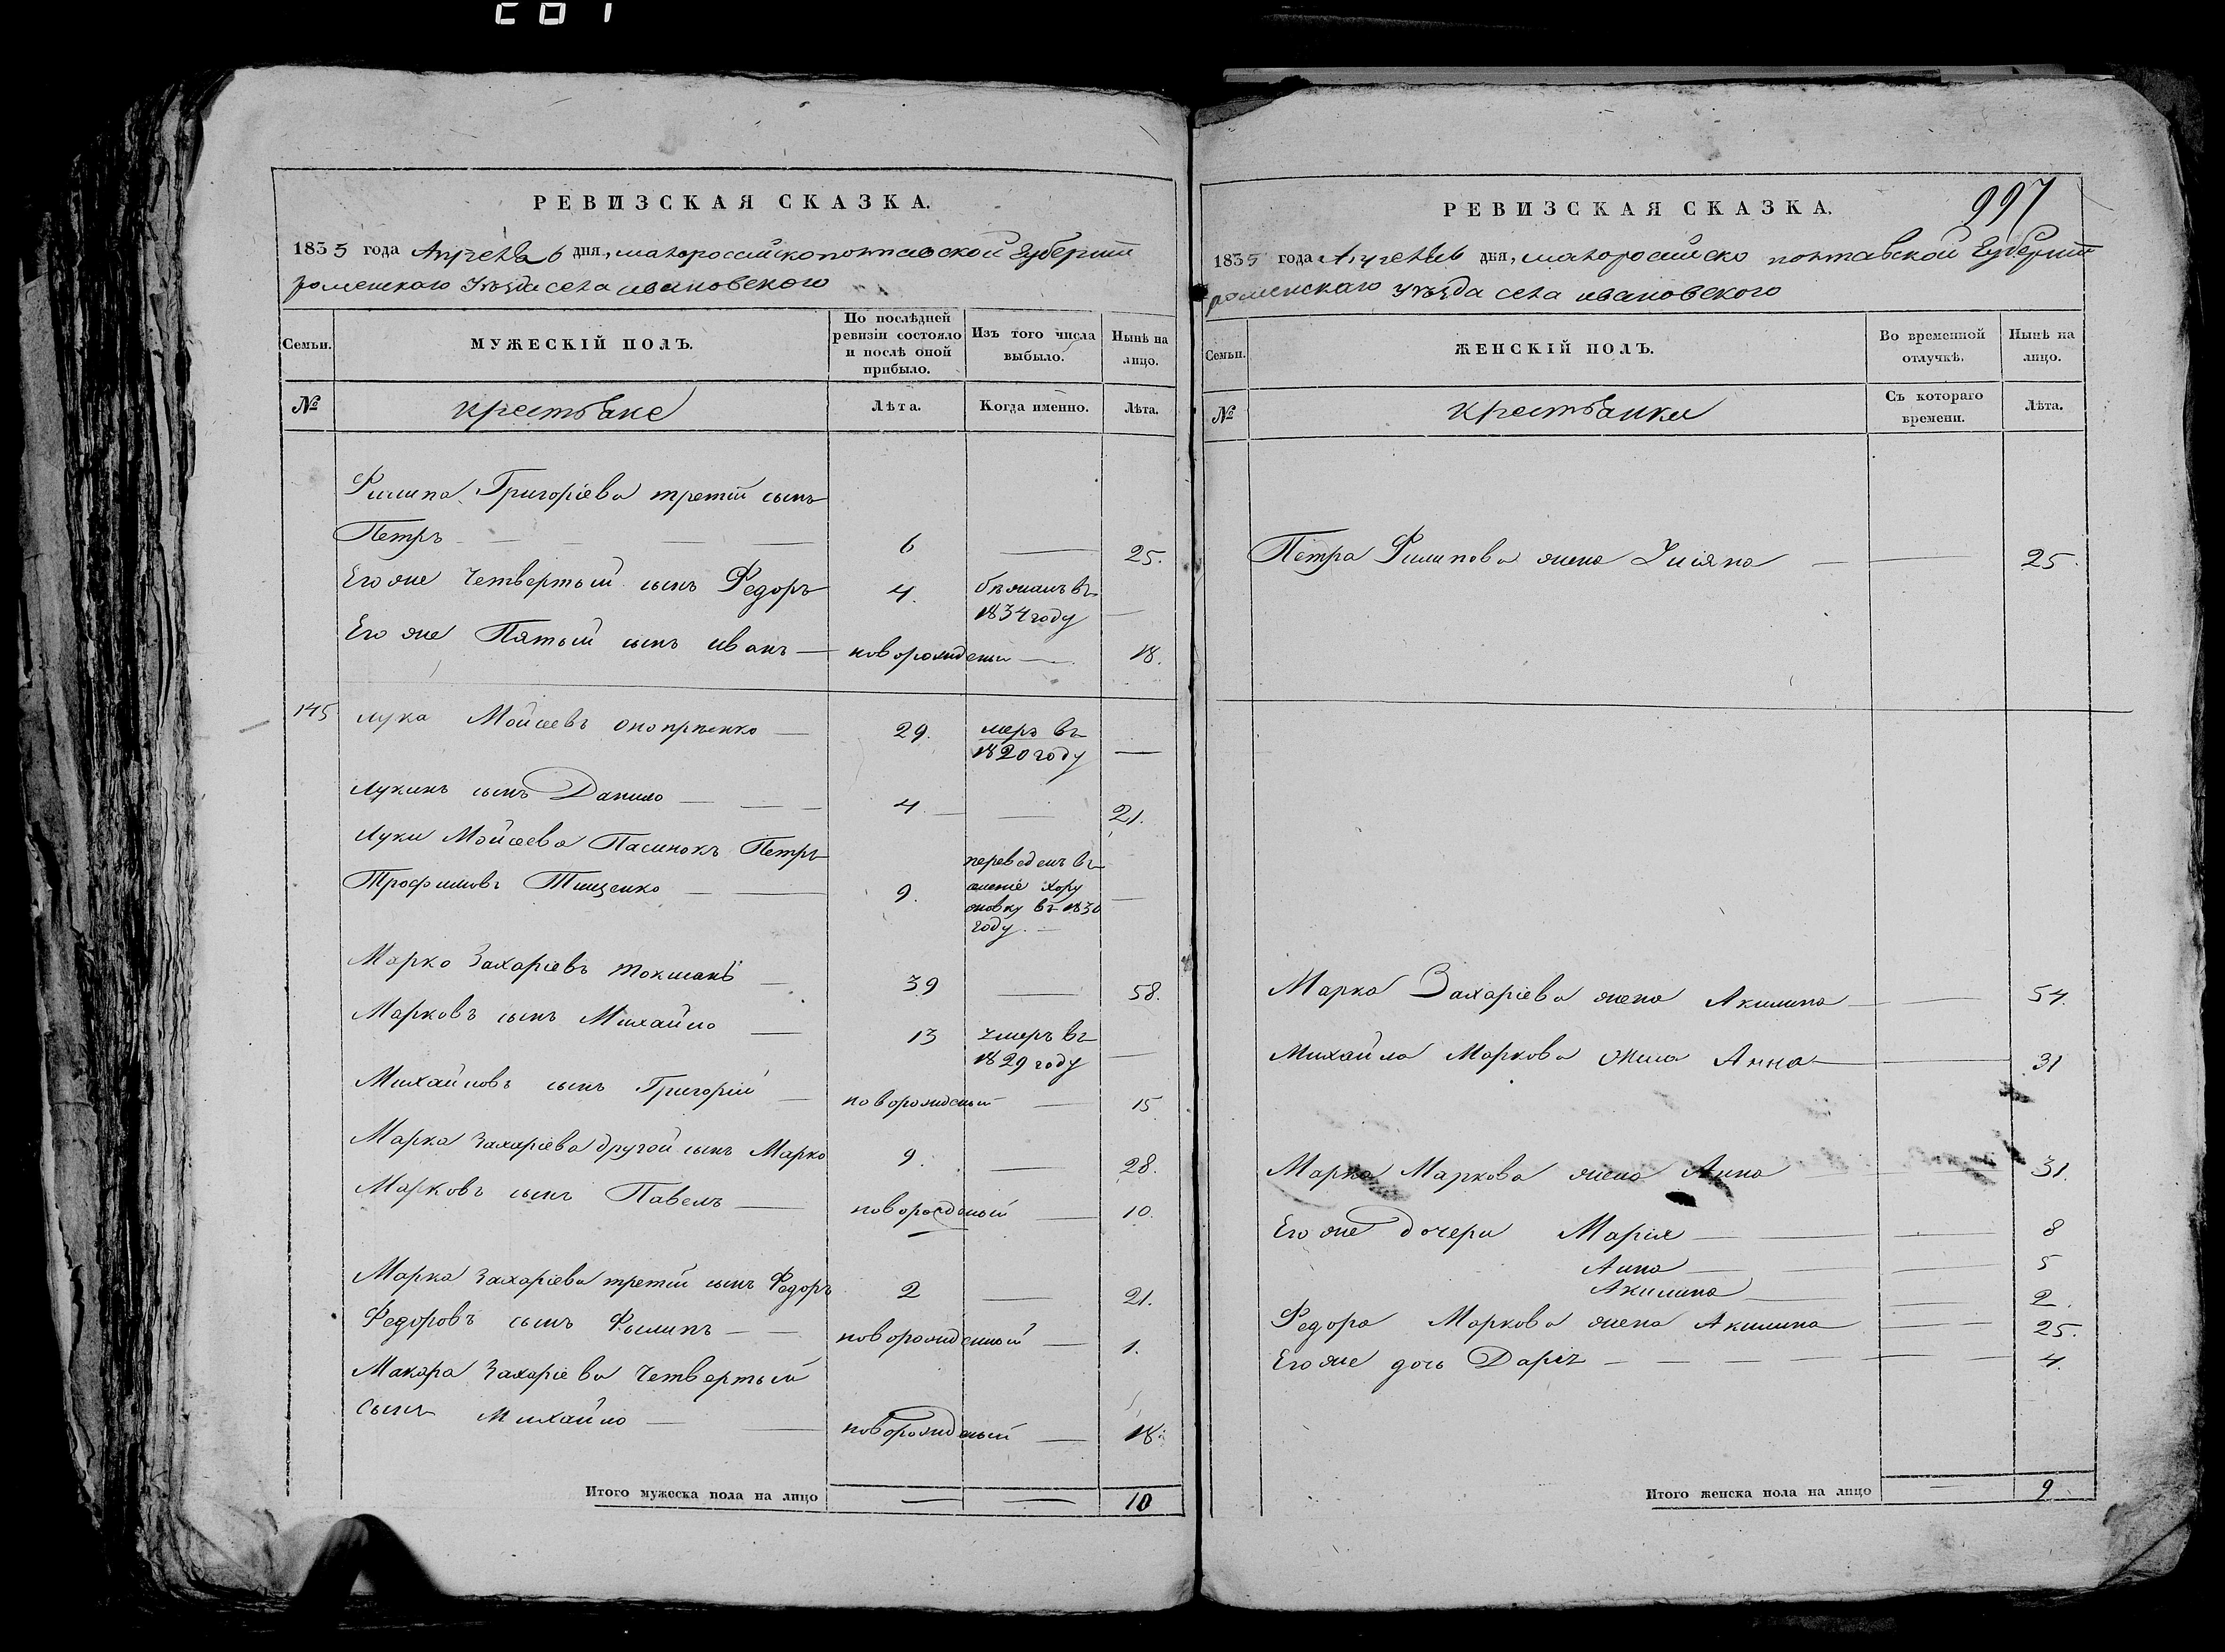 РЕВИЗСКАЯ СКАЗКА.
1835 года Апреля 6 дня, малороссийскополтавской губернии
роменскаго уѣзда села ивановского
Семьи.
МУЖЕСКІЙ ПОЛЪ.
По послѣдней ревизіи состояло и послѣ оной прибыло.
Изъ того числа выбыло.
Нынѣ на лицо.
№
крестьяне
Лѣта.
Когда именно.
Лѣта.
Филипа Григоріева третій сынъ
Петръ 6 25.
Его же Четвертый сынъ Федоръ 4. бѣжалъ въ
1834 году
Его же Пятый сынъ иванъ новорожденый 18.
145 лука Мойсеевъ оноприенко 29. меръ въ
1820 году
Лукинъ сынъ Данило 4 21.
Луки Мойсеева Пасинокъ Петръ
Трофимовъ Тищенко 9. переведенъ въ
имение хору
жовку въ 1830
году.
Марко Захаріевъ 39 58.
Марковъ сынъ Михайло 13 умеръ въ
1829 году
Михайловъ сынъ Григорій новорожденый 15
Марка Захаріева другой сынъ Марко 9. 28.
Марковъ сынъ Павелъ новорожденый 10.
Марка Захаріева третій сынъ Федоръ 2 21.
Федоровъ сынъ Филипъ новорожденный 1.
Макара Захаріева Четвертый
сынъ Михайло новорожденый 18.
Итого мужеска пола на лицо 10
997
РЕВИЗСКАЯ СКАЗКА.
1835 года Апреля 6 дня, малоросийско полтавской губернии
роменскаго уѣзда села ивановского
Семьи.
ЖЕНСКІЙ ПОЛЪ.
Во временной отлучкѣ.
Нынѣ на лицо.
№
крестьянки
Съ котораго времени.
Лѣта.
Петра Филипова жена Улияна 25.
Марка Захаріева жена Акилина 54.
Михайла Маркова жена Анна 31
Марка Маркова жена Анна 31.
Его же дочери Марія 8
Анна 5
Акилина 2.
Федора Маркова жена Акилина 25.
Его же дочь Дарія 4.
Итого женска пола на лицо 9